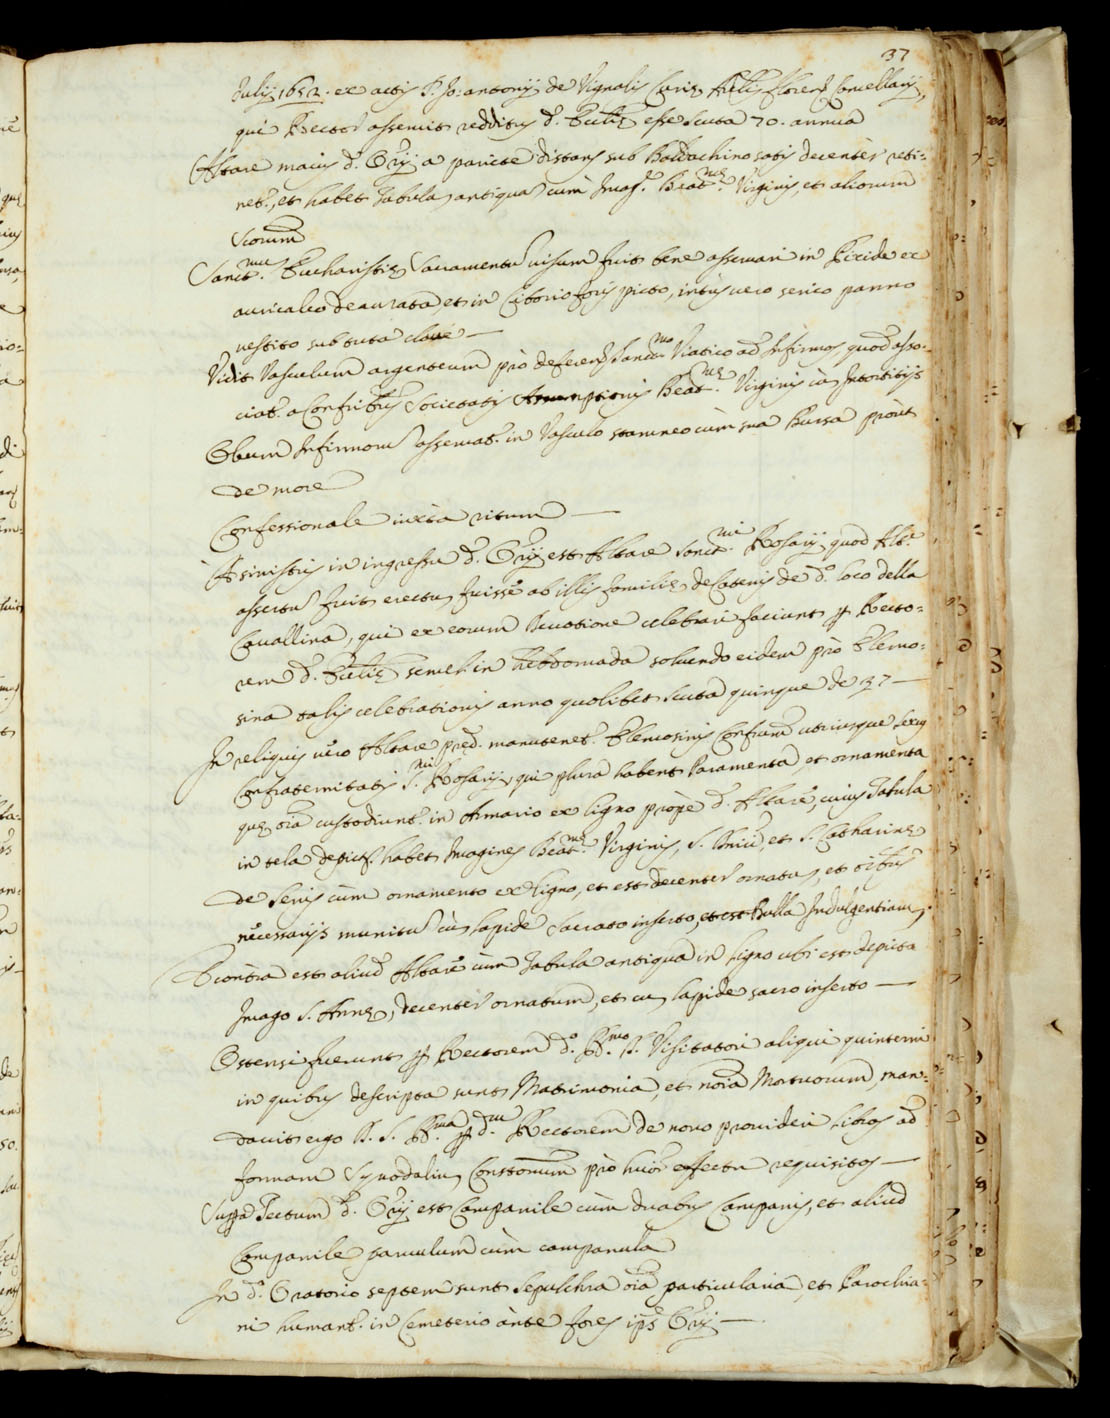 37
Julij 1652. ex actis S. Jo: antonij de Vignalis Curię Archilis floren. Cancellarij,
qui Rector asseruit redditus d. Ecclię esse scuta 70. annua
Altare maius d. Orij a pariete distans sub Baldachino satis decenter reti-
net., et habet Tabula antiqua cum Imag.e Beat.mę Virginis, et aliorum
Scorum
Sanct.mu Eucharistię Sacramentu visum fuit bene asservari in Pixide ex
auricalco deaurata, et in Ciborio foris picto, intus vero serico panno
vestito sub tuta clave
Vidit Vasculum argenteum pro deferen. Sanct.mo Viatico ad Infirmos, quod asso-
ciat. a Confribus Societatis Assumptionis Beat.mę Virginis cu Intortitijs
Oleum Infirmoru asservat. in Vasculo stamneo cum sua Bursa prout
de more
Confessionale iuxta ritum
A sinistris in ingressu d. Orij est Altare Sanct.mi Rosarij quod Alt.e
assertu fuit erectu fuisse ab illis familię de Catenis de d.o loco della
Cavallina, qui ex eorum devotione celebrari faciunt p Recto-
rem d. Ecclię semel in hebdomada solvendo eidem pro Elemo-
sina talis celebrationis anno quolibet scuta quinque de 37
In reliquis vero Altare pred. manutenet. Elemosinis Confrum utriusque sexus
Confraternitatis S.mi Rosarij, qui plura habent Paramenta, et ornamenta
quę oia custodiunt. in Armario ex ligno prope d. Altare, cuius Tabula
in tela depict. habet Imagines Beat.mę Virginis, S. Dnici, et S. Catharinę
de Senis cum ornamento ex ligno, et est decenter ornatu, et oibus
necessarijs munitu cu lapide sacrato inserto, et est Bulla Indulgentiaru,
E contra est aliud Altare cum Tabula antiqua in ligno ubi est depicta
Imago S. Annę, decenter ornatum, et cu lapide sacro inserto
Ostensi fuerunt p Rectorem d.o Rd.mo D. Visitatori aliqui quinterni
in quibus descripta sunt Matrimonia, et noia Mortuorum, man-
davit ergo D. S. Rd.ma p d.m Rectorem de novo provideri libros ad
formam Synodaliu Constonum pro huiōi effectu requisitos
Supra Tectum d. Orij est Campanile cum duabus Campanis, et aliud
Campanile parvulum cum campanula
In d.o Oratorio septem sunt Sepulchra oia particularia, et Parochia-
ni humant. in Cemeterio ante fores ips Orij